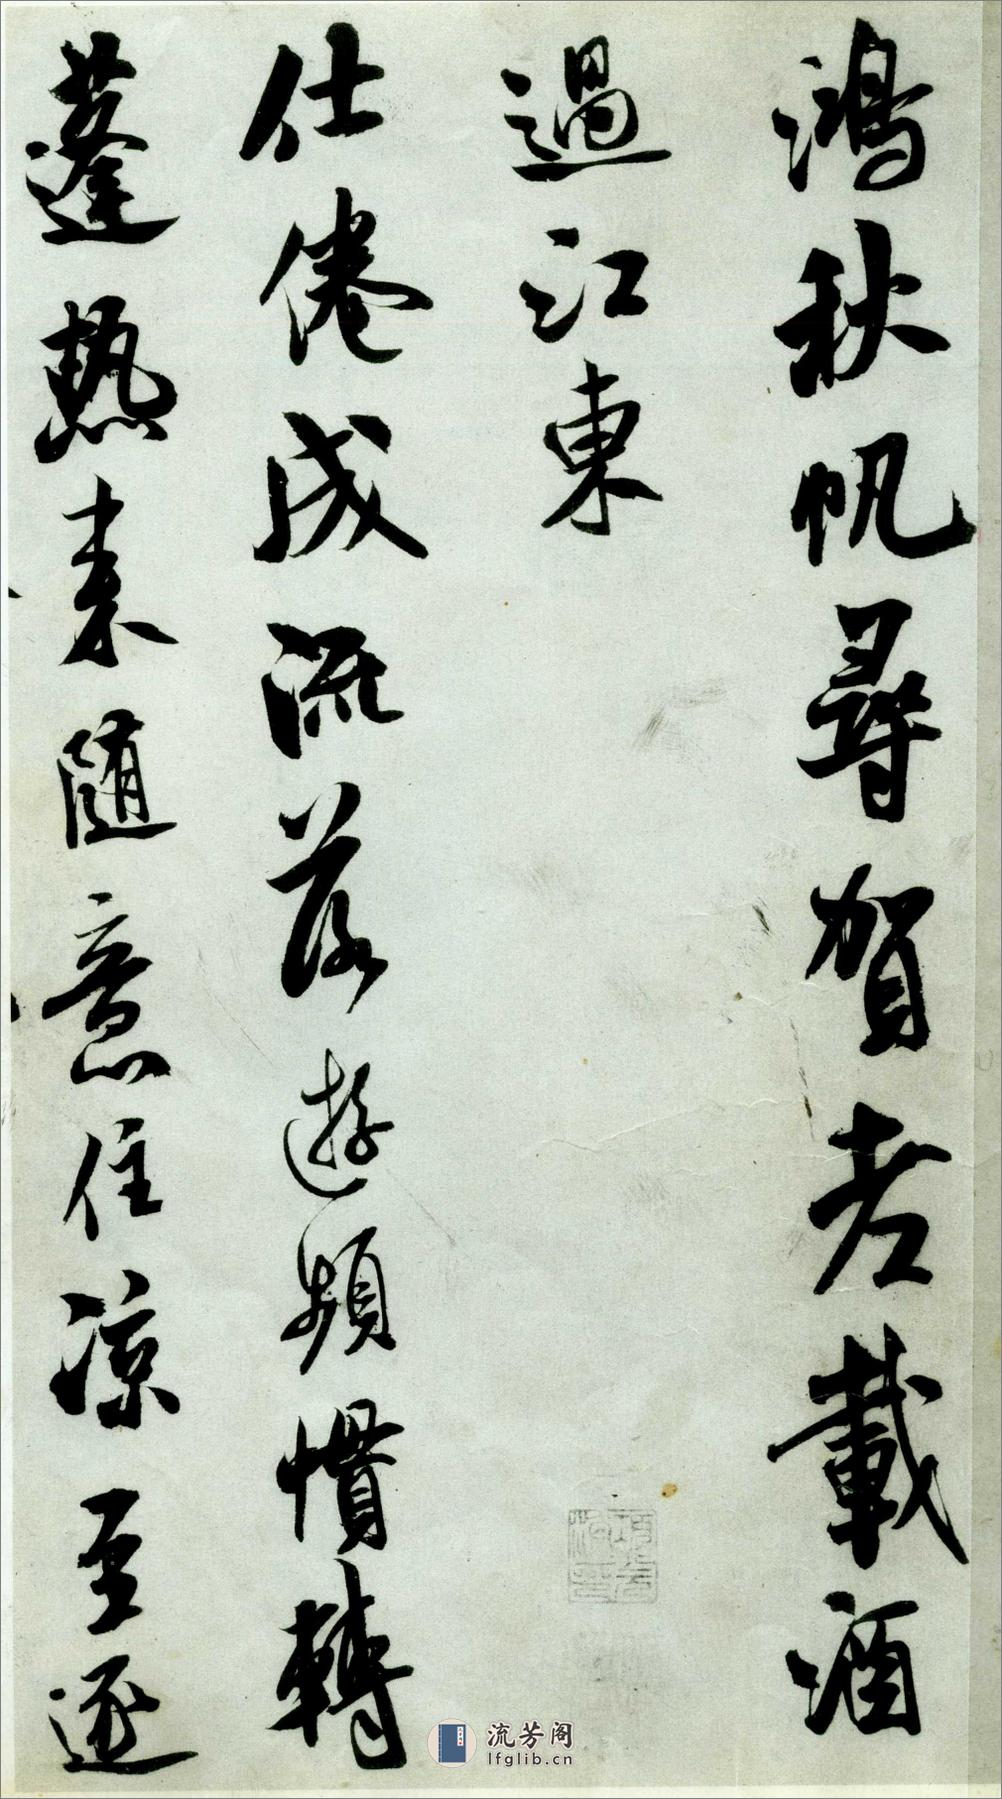 鴻秋帆尋賀老載酒
過江東
仕倦成流落遊頻慣轉
蓬熱來隨意住涼至逐
流芳阁
lfglib.cn